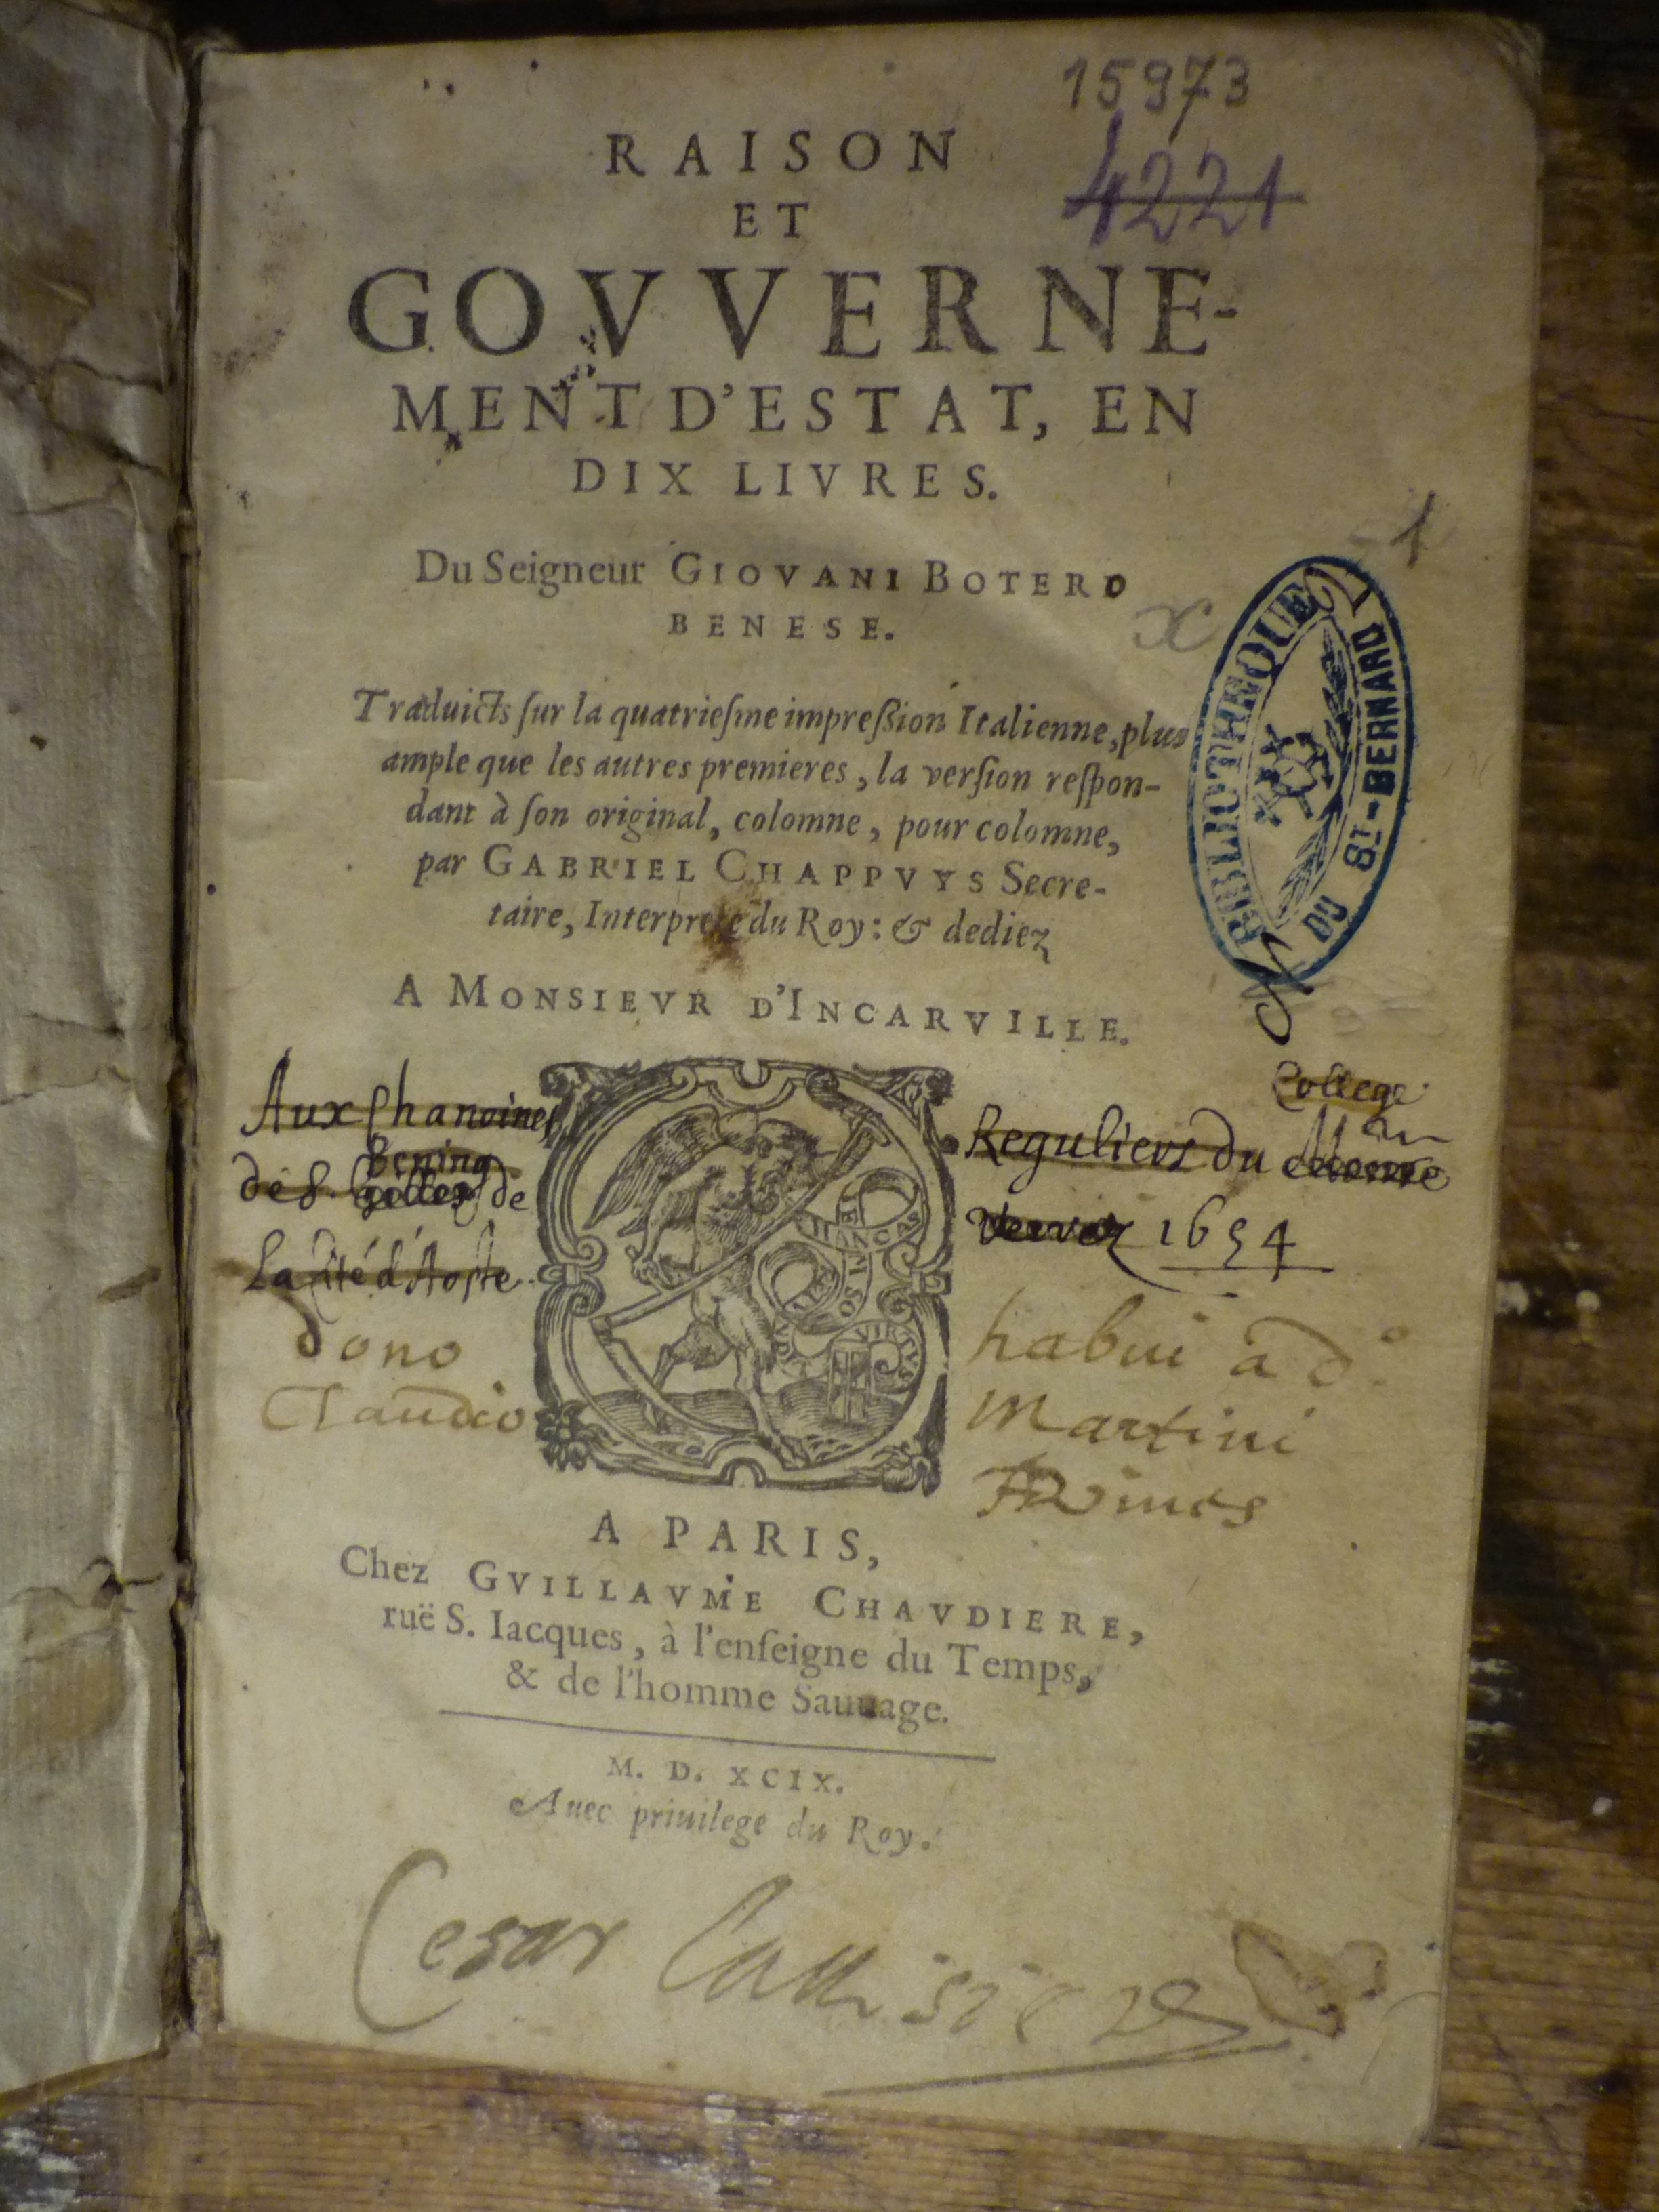 15973
4221
RAISON
ET
GOVVERNE-
MENT D'ESTAT, EN
DIX LIVRES.
1
Du Seigneur GIOVANI BOTERO
BENESE.
x
BIBLIOTHEQUE
DU St-BERNARD
Traduicts ſur la quatrieſme impreſſion Italienne, plus
ample que les autres premieres, la verſion reſpon-
dant à ſon original, colomne, pour colomne,
par GABRIEL CHAPPVYS Secre-
taire, Interprete du Roy: & dediez
A MONSIEVR D'INCARVILLE.
College
Aux Chanoines Reguliers du
Bening
de S. Gilles de
1654
La Cité d'Aoste
HANC ACIES
VIRTVS
dono habui a d°
Claudio Martini
A PARIS,
Chez GVILLAVME CHAVDIERE,
ruë S. Iacques, à l'enſeigne du Temps,
& de l'homme Sauuage.
M. D. XCIX.
Auec priuilege du Roy.
Cesar